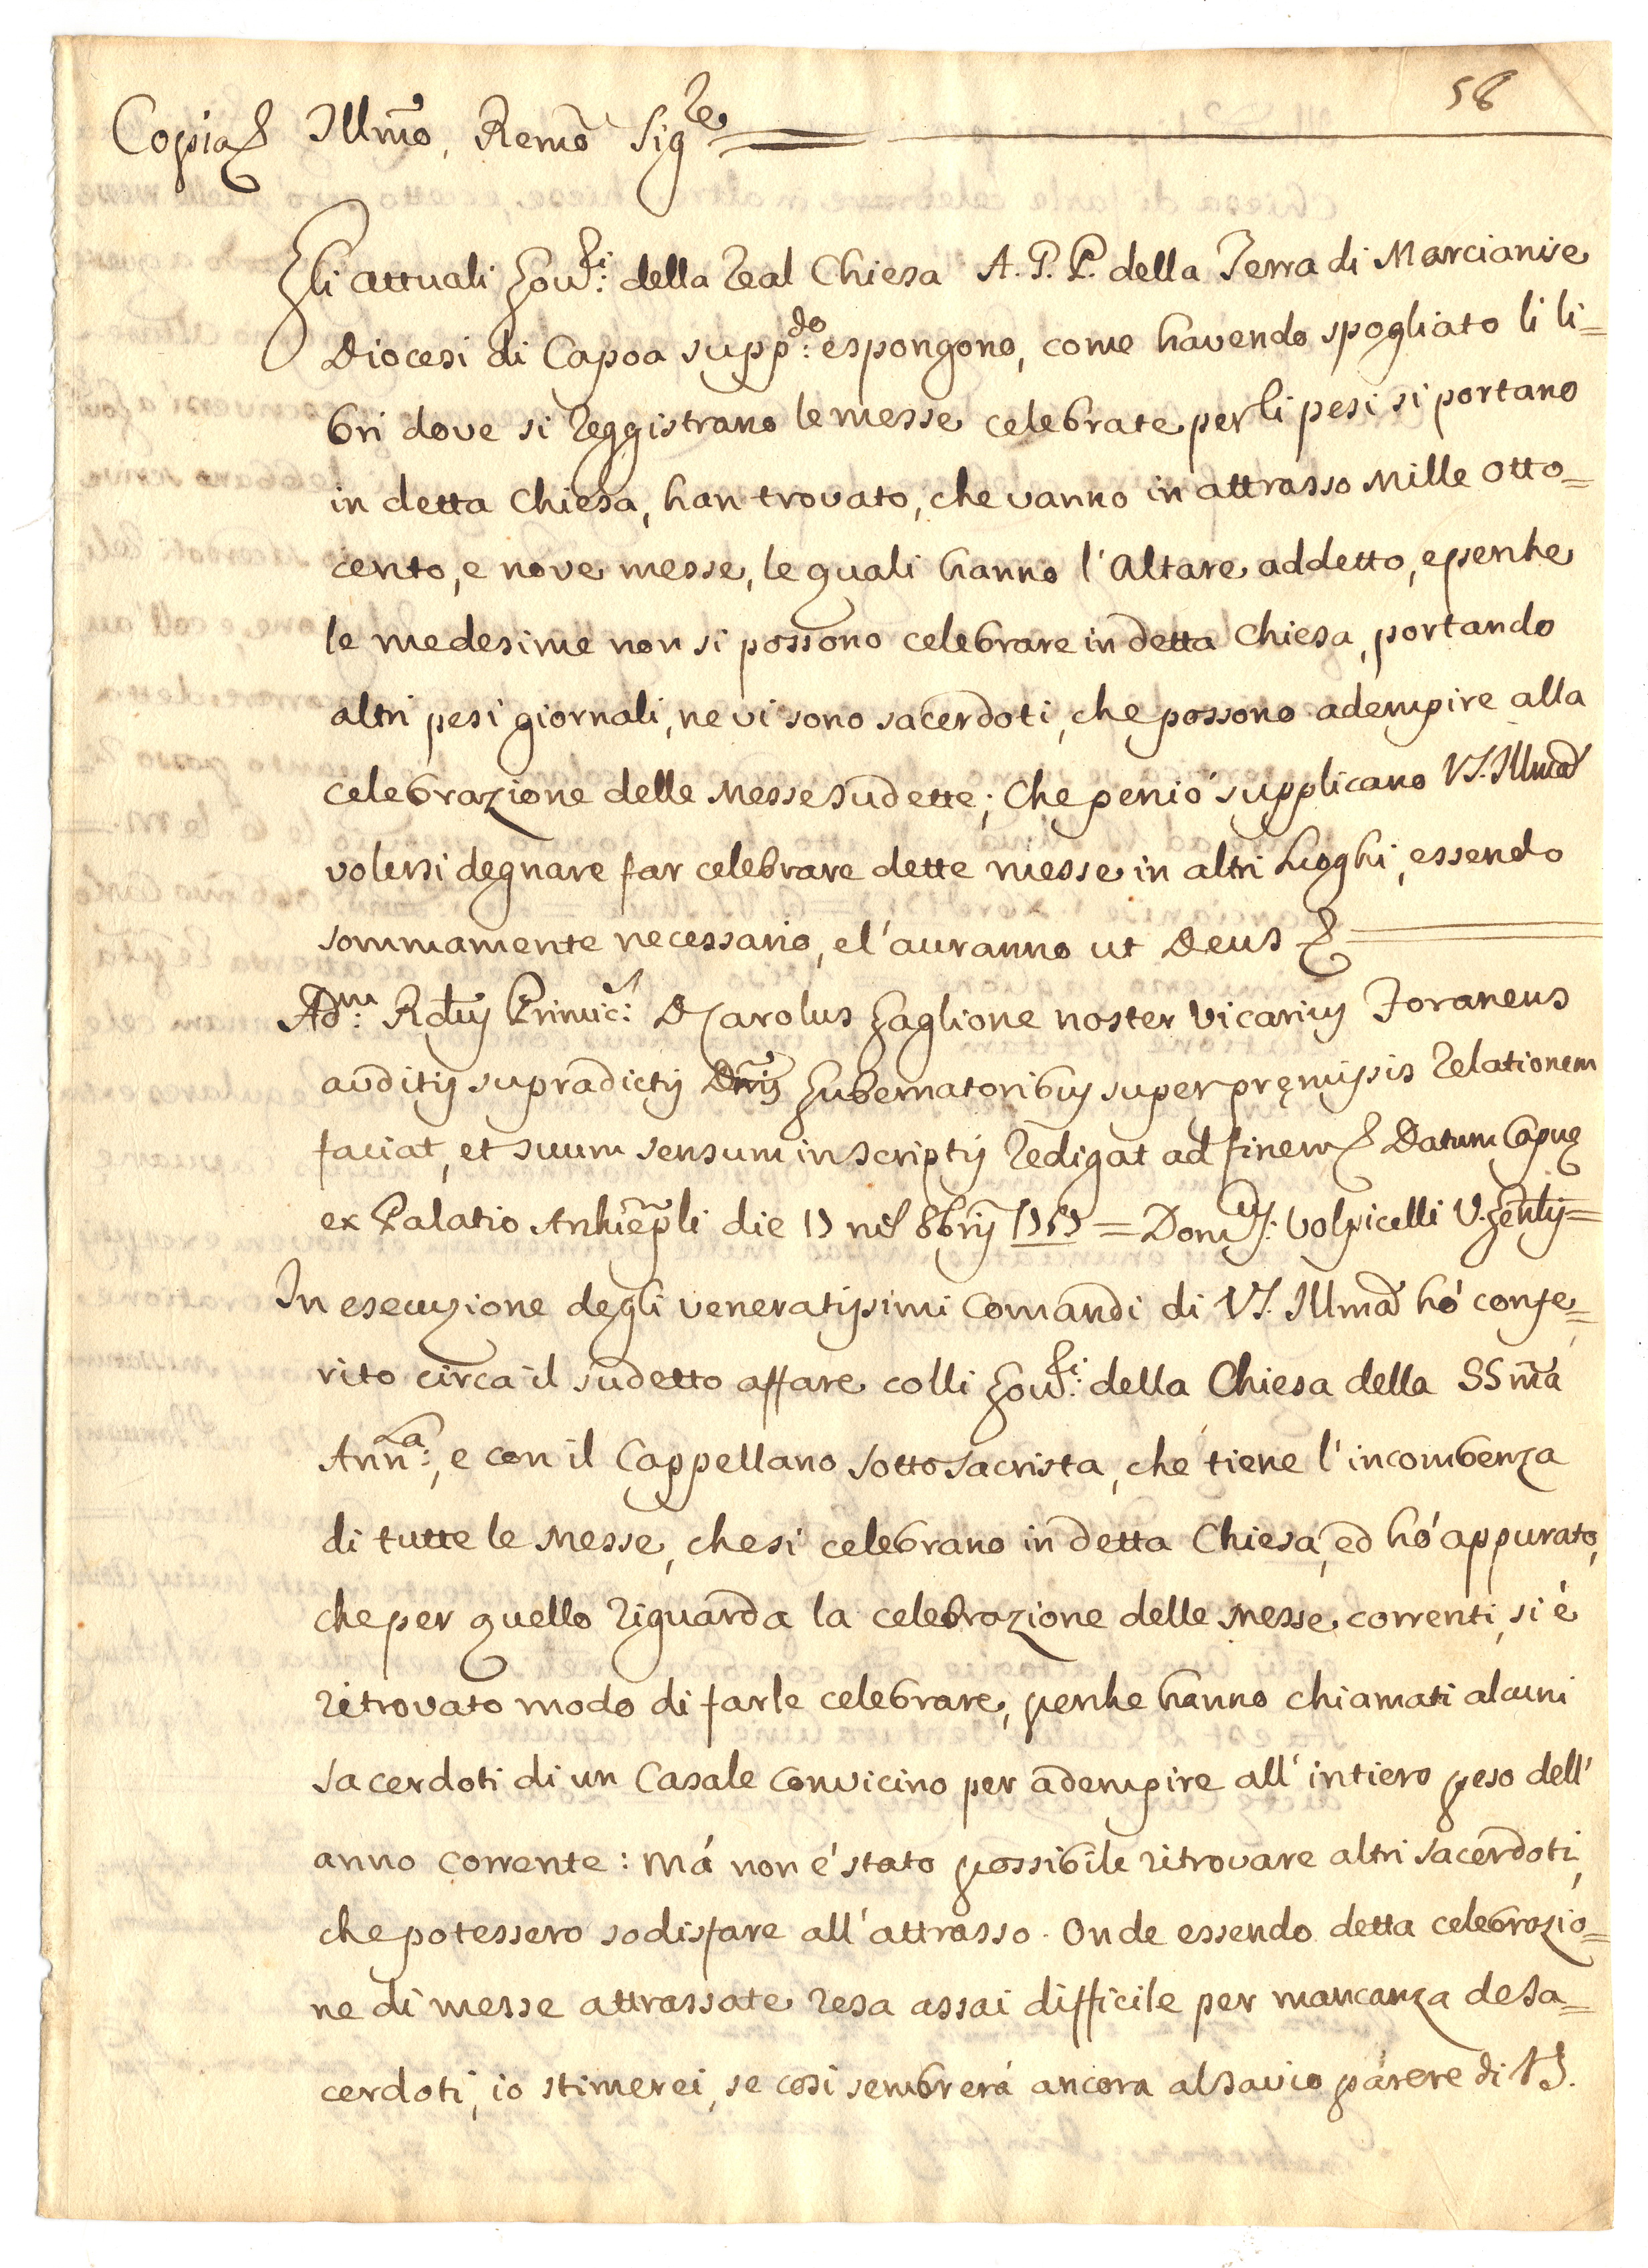 58
Copia Illmo, Remo Sig.re
Gli attuali Gov.ri della Real Chiesa A. G. P. della Terra di Marcianise
Diocesi di Capoa supp.do espongono, come havendo spogliato li li=
bri dove si reggistrano le messe celebrate per li pesi si portano
in detta Chiesa, han trovato, che vanno in attrasso Mille otto=
cento, e nove messe, le quali hanno l'Altare addetto, e perche
le medesime non si possono celebrare in detta Chiesa, portando
altri pesi giornali, ne vi sono sacerdoti, che possono adempire alla
celebrazione delle Messe sudette; Che perciò supplicano VS. Illma
volersi degnare far celebrare dette messe in altri Luoghi, essendo
sommamente necessario, e l'auranno ut Deus
Adm: Rdus Primic: D Carolus Zaglione noster Vicarius Foraneus
auditis supradictis Dnis Gubernatoribus super premissis relationem
faciat, et suum sensum in scriptis redigat ad finem Datum Capue
ex Palatio Archiepli die mis 8bris = Dom.cus: Volpicelli V. Gentis=
In esecuzione degli veneratissimi Comandi di VS. Illma hó confe=
rito circa il sudetto affare colli Gov.ri della Chiesa della SSma
Ann.ta:, e con il Cappellano sottosacrista, che tiene l'incombenza
di tutte le Messe, che si celebrano in detta Chiesa, ed hó appurato,
che per quello riguarda la celebrazione delle Messe correnti, si é
ritrovato modo di farle celebrare, perche hanno chiamati alcuni
sacerdoti di un Casale convicino per adempire all' intiero peso dell'
anno corrente: Má non é stato possibile ritrovare altri sacerdoti,
che potessero sodisfare all'attrasso. Onde essendo detta celebrazio=
ne di messe attrassate resa assai difficile per mancanza de Sa=
cerdoti, io stimerei, se cosi sembrerá ancora al savio parere di VS.